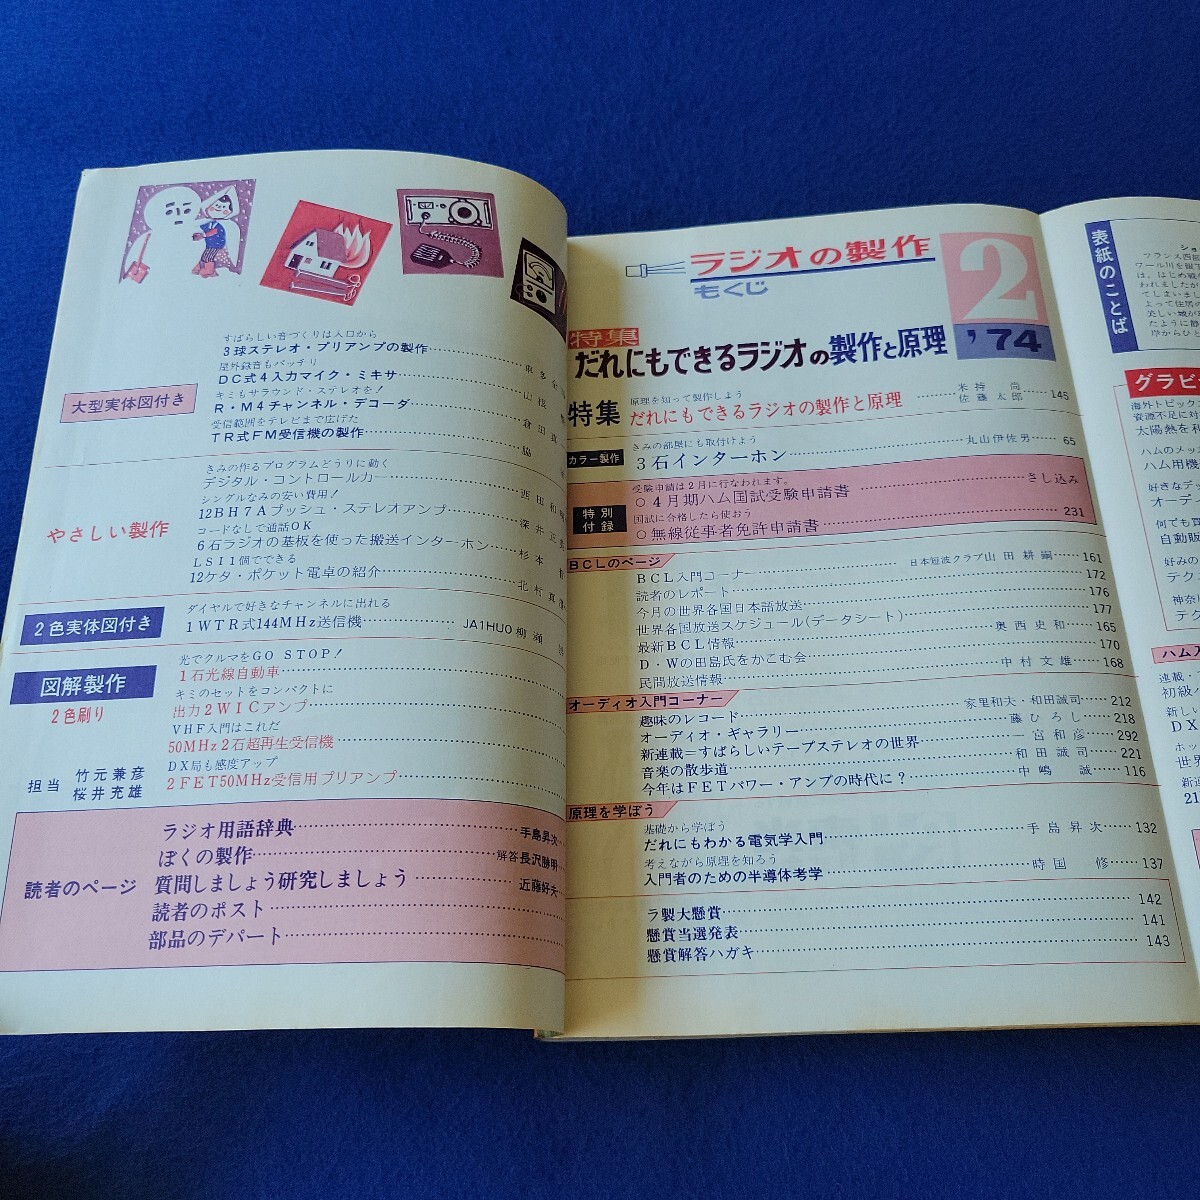 すばらしい音づくりは入口から
3球ステレオ・プリアンプの製作
屋外録音もバッチリ
DC式4入力マイク・ミキサ
キミもサラウンド・ステレオを!
R・M4チャンネル・デコーダ
受信範囲をテレビまで広げた
TR式FM受信機の製作
大型実体図付き
やさしい製作
きみの作るプログラムどうりに動く
デジタル・コントロールカー
シングルなみの安い費用!
12BH7Aプッシュ・ステレオアンプ
コードなしで通話OK
6石ラジオの基板を使った搬送インターホン
LSI1個でできる
12ケタ・ポケット電卓の紹介
2色実体図付き
ダイヤルで好きなチャンネルに出れる
1WTR式144MHz送信機 JA1HUO柳瀬
図解製作
2色刷り
担当 竹元兼彦
桜井充雄
光でクルマをGO STOP!
1石光線自動車
キミのセットをコンパクトに
出力2WICアンプ
VHF入門はこれだ
50MHz2石超再生受信機
DX局も感度アップ
2FET50MHz受信用プリアンプ
読者のページ
ラジオ用語辞典 手島昇次
ぼくの製作 解答長沢勝明
質問しましょう研究しましょう 近藤好夫
読者のポスト
部品のデパート
ラジオの製作
もくじ
2
'74
特集
だれにもできるラジオの製作と原理
特集
原理を知って製作しよう
だれにもできるラジオの製作と原理 米持 尚 佐藤太郎 145
カラー製作
きみの部屋にも取付けよう
3石インターホン 丸山伊佐男 65
特別付録
受験申請は2月に行なわれます。
○4月期ハム国試受験申請書 さし込み
国試に合格したら使おう
○無線従事者免許申請書 231
BCLのページ
BCL入門コーナー 日本短波クラブ山田耕嗣 161
読者のレポート 172
今月の世界各国日本語放送 176
世界各国放送スケジュール(データシート) 177
最新BCL情報 奥西史和 165
D・Wの田島氏をかこむ会 170
民間放送情報 中村文雄 168
オーディオ入門コーナー
趣味のレコード 家里和夫・和田誠司 212
オーディオ・ギャラリー 藤ひろし 218
新連載=すばらしいテープステレオの世界 一宮和彦 292
音楽の散歩道 和田誠司 221
今年はFETパワー・アンプの時代に? 中嶋 誠 116
原理を学ぼう
基礎から学ぼう
だれにもわかる電気学入門 手島昇次 132
考えながら原理を知ろう
入門者のための半導体考学 時国 修 137
ラ製大懸賞 142
懸賞当選発表 141
懸賞解答ハガキ 143
表紙のことば
フランス西部
ワール川を眼下
は、はじめ戦
われましたが
てしまいまし
よって住居の
美しい城が
たように静
岸からひと
グラビ
海外トピック
資源不足に対
太陽熱を利
ハムのメッ
ハム用機
好きなデッ
オーデ
何でも買
自動販
好みの
テク
神奈川
テク
ハム入
連載・
初級
新しい
DX
ホッ
世界
新連
21